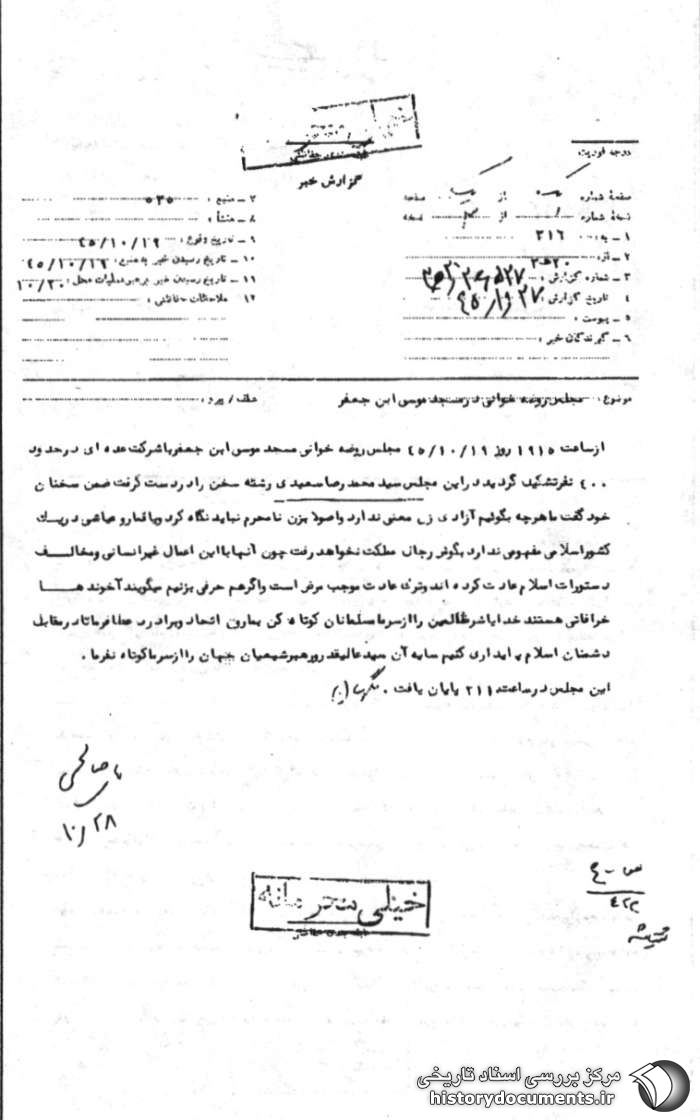 خیلی محرمانه
طبقه‌بندی حفاظتی
گزارش خبر
درجه فوریت
صفحهٔ شماره یک از یک صفحه
نسخهٔ شماره ۱ از نسخه
۱ – به : ۳۱۶
۲ – از : ۲۰ ه ۳
۳ – شماره گزارش :
۴ تاریخ گزارش : ۴۵/۱۰/۲۷
۵ – پیوست :
۶ – گیرندگان خبر :
۷ – منبع : ۵۳۵
۸ – منشأ :
۹ – تاریخ وقوع : ۴۵/۱۰/۱۹
۱۰ – تاریخ رسیدن خبر به منبع : ۴۵/۱۰/۱۹
۱۱ – تاریخ رسیدن خبر به رهبر عملیات محل : ۱۰/۲۰
۱۲ ملاحظات حفاظتی :
موضوع : مجلس روضه خوانی در مسجد موسی ابن جعفر
عطف / پیرو :
از ساعت ۱۹۱۵ روز ۴۵/۱۰/۱۹ مجلس روضه خوانی مسجد موسی ابن جعفر با شرکت عده ای در حدود
۴۰۰ نفر تشکیل گردید در این مجلس سید محمد رضا سعیدی رشته سخن را در دست گرفت ضمن سخنان
خود گفت ما هر چه بگوئیم آزادی زن معنی ندارد و اصولا بزن نامحرم نباید نگاه کرد و یا قمار و عیاشی در یک
کشور اسلامی مفهومی ندارد بگوش رجال مملکت نخواهد رفت چون آنها با این اعمال غیر انسانی و مخالف
دستورات اسلام عادت کرده اند و ترک عادت موجب مرض است و اگر هم حرفی بزنیم میگویند آخوند ها
خرافاتی هستند خدایا شر ظالمین را از سر ما مسلمانان کوتاه کن بما روح اتحاد و برادری عطا فرما تا در مقابل
دشمنان اسلام پایداری کنیم سایه آن سید عالیقدر و رهبر شیعیان جهان را از سر ما کوتاه نفرما .
این مجلس در ساعت ۲۱۱ پایان یافت .
صالحی
۱۰/۲۸
۴۲۲
خیلی محرمانه
مرکز بررسی اسناد تاریخی
historydocuments.ir